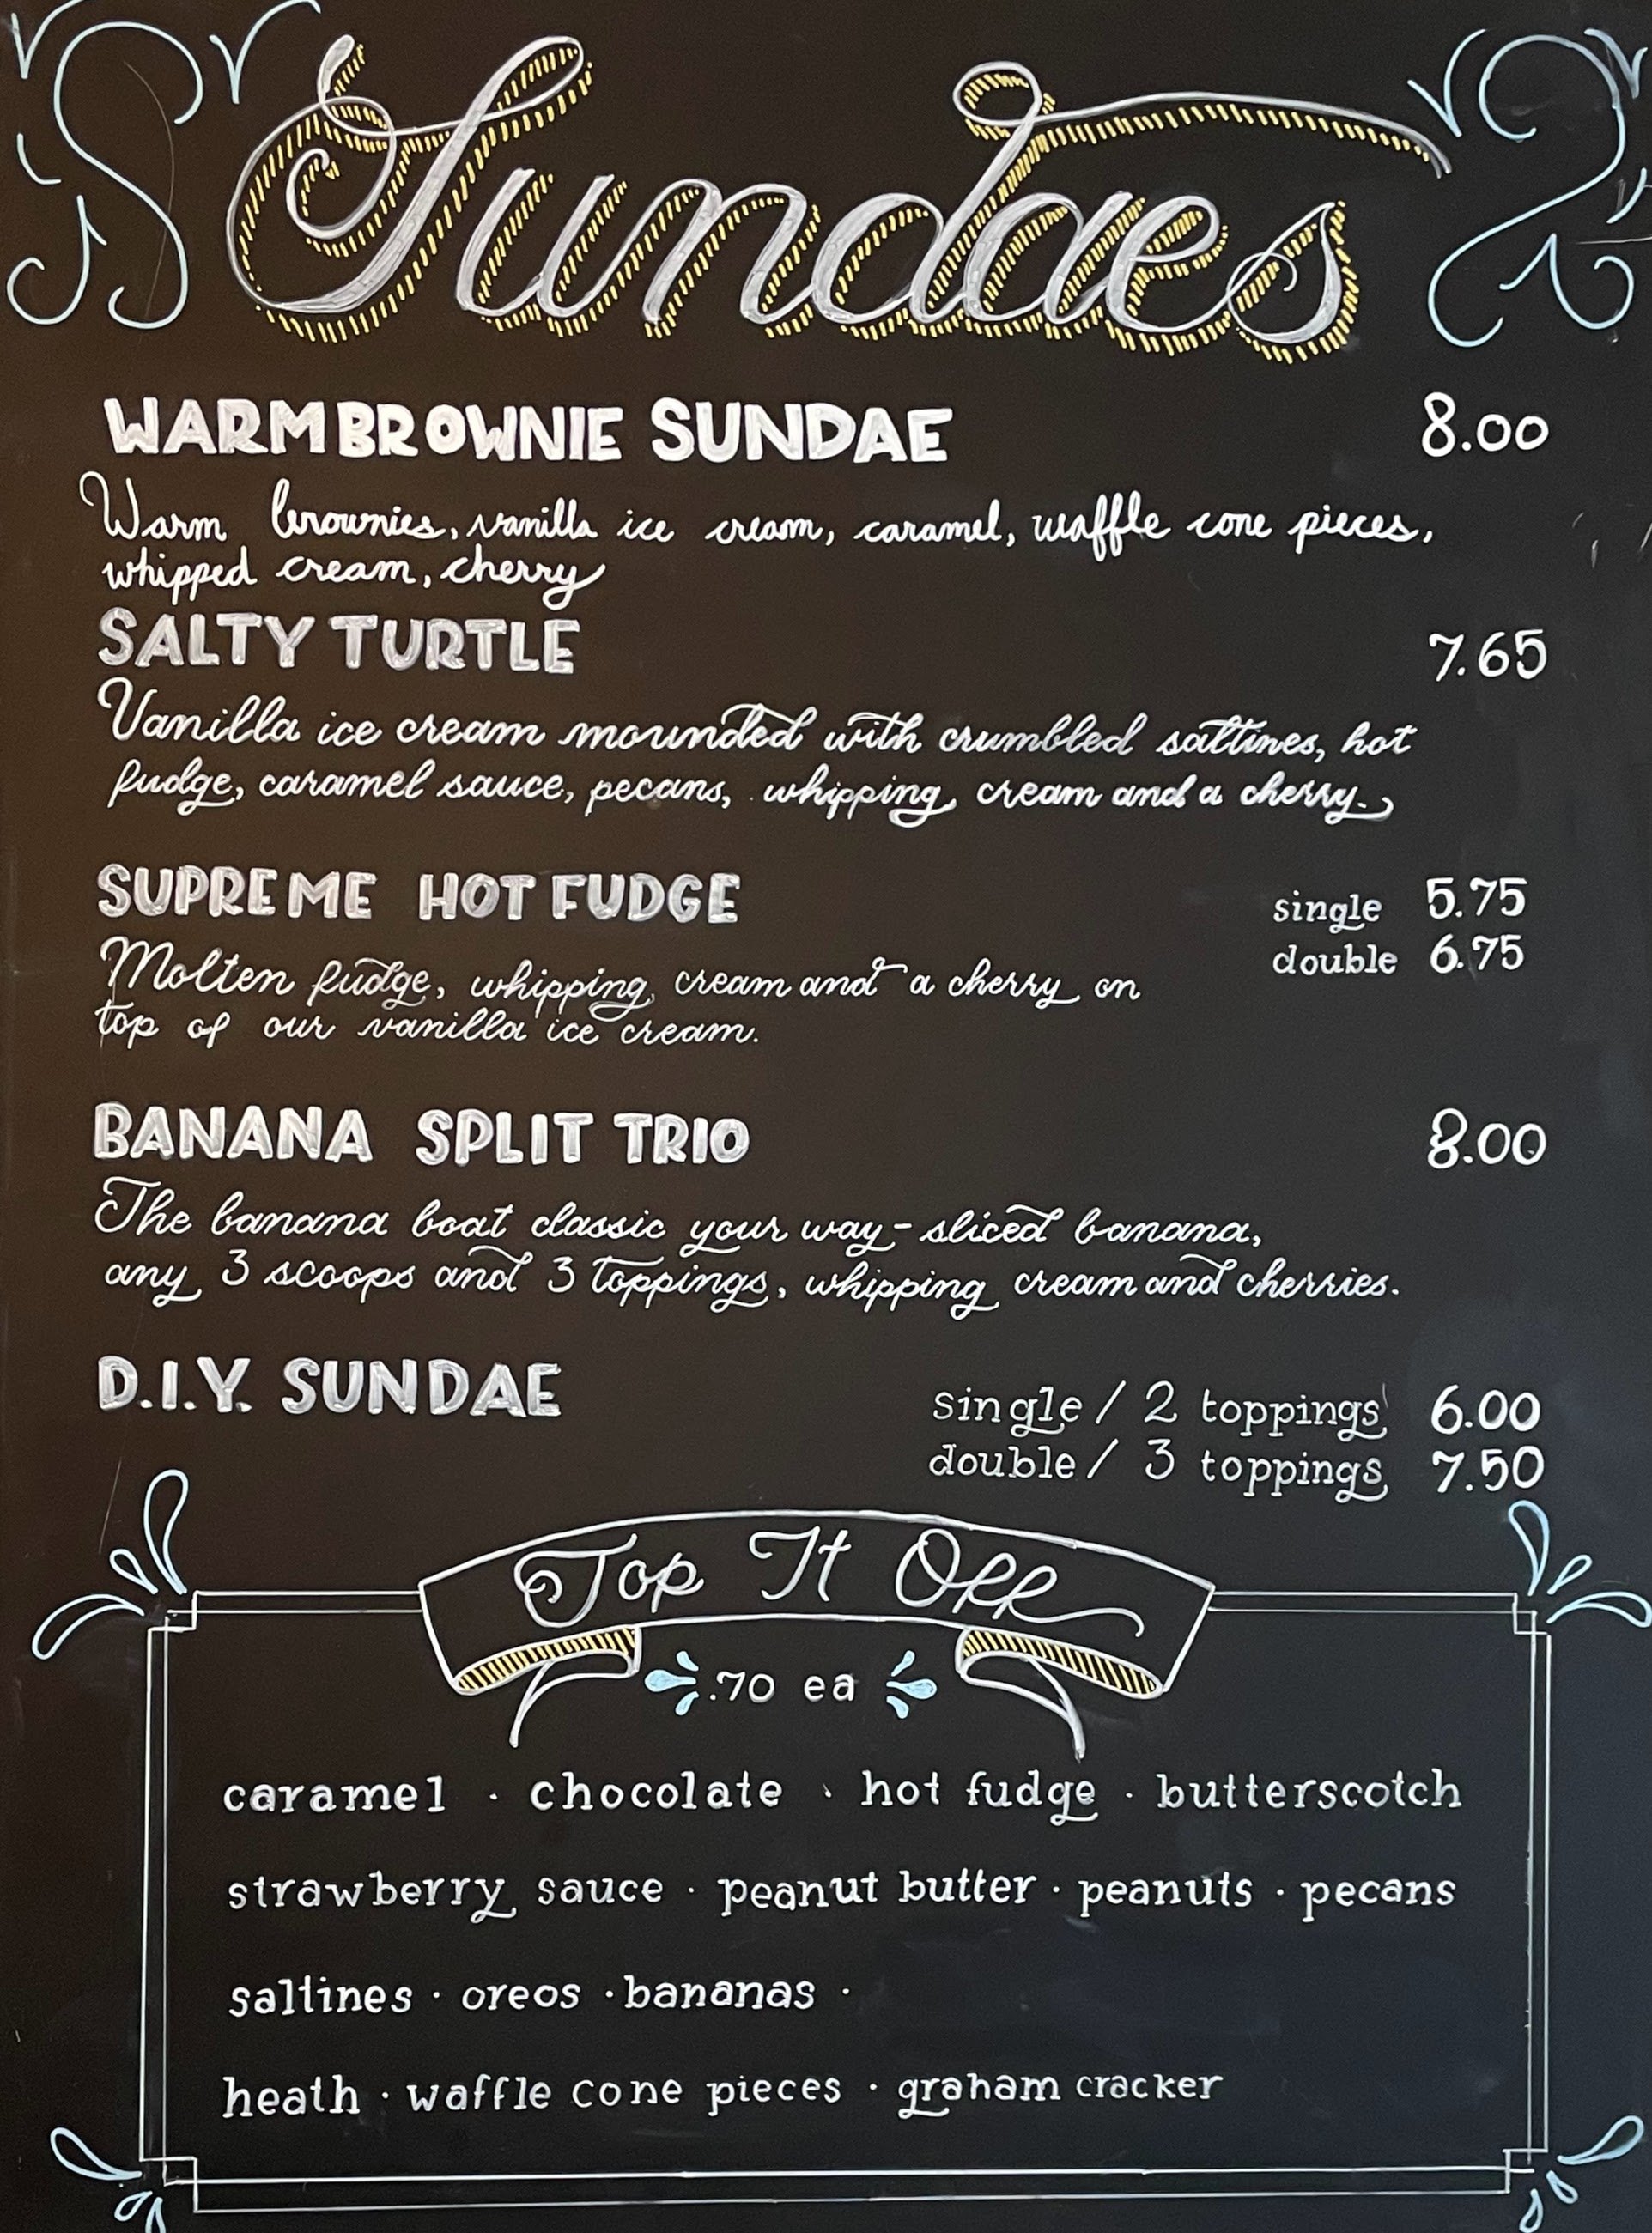 Sundaes
WARM BROWNIE SUNDAE 8.00
Warm brownies, vanilla ice cream, caramel, waffle cone pieces,
whipped cream, cherry
SALTY TURTLE 7.65
Vanilla ice cream mounded with crumbled saltines, hot
fudge, caramel sauce, pecans, whipping cream and a cherry.
SUPREME HOT FUDGE single 5.75
double 6.75
Molten fudge, whipping cream and a cherry on
top of our vanilla ice cream.
BANANA SPLIT TRIO 8.00
The banana boat classic your way - sliced banana,
any 3 scoops and 3 toppings, whipping cream and cherries.
D.I.Y. SUNDAE single / 2 toppings 6.00
double / 3 toppings 7.50
Top It Off
.70 ea
caramel · chocolate · hot fudge · butterscotch
strawberry sauce · peanut butter · peanuts · pecans
saltines · oreos · bananas ·
heath · waffle cone pieces · graham cracker